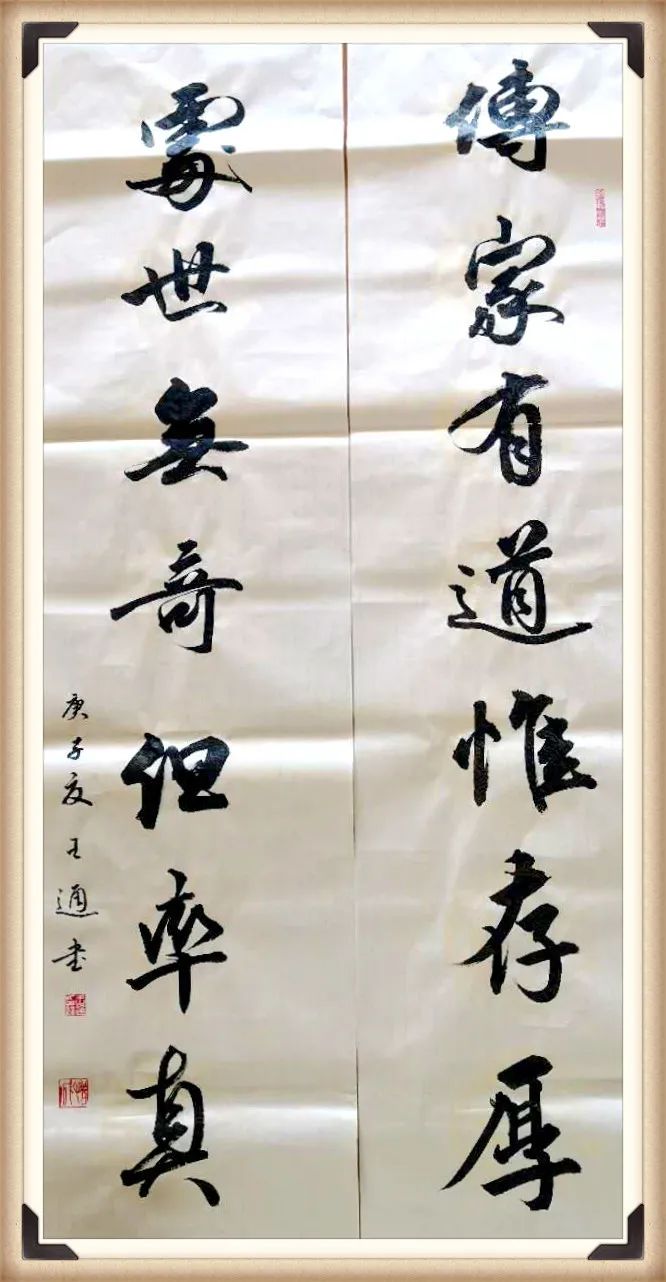 傳家有道惟存厚
處世無奇但率真
庚子夏王通书